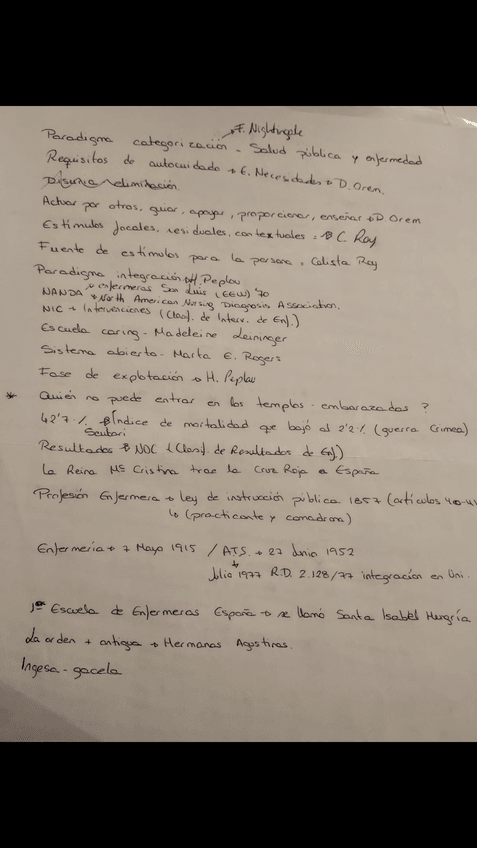 F. Nightingale
Paradigma categorización - Salud pública y enfermedad
Requisitos de autocuidado → E. Necesidades → D. Orem.
Disuria → eliminación
Actuar por otros, guiar, apoyar, proporcionar, enseñar → D. Orem
Estímulos focales, residuales, contextuales = → C. Roy
Fuente de estímulos para la persona = Calista Roy
Paradigma integración → H. Peplau
NANDA → enfermeras San Luis (EEUU) '70
→ North American Nursing Diagnosis Association.
NIC → Intervenciones (Clasif. de Interv. de Enf.)
Escuela caring - Madeleine Leininger
Sistema abierto - Marta E. Rogers
Fase de explotación → H. Peplau
* Quién no puede entrar en los templos - embarazadas ?
42'7 % → Índice de mortalidad que bajó al 2'2 % (guerra Crimea)
Scutari
Resultados → NOC (Clasif. de Resultados de Enf.)
La Reina Mª Cristina trae la Cruz Roja a España
Profesión Enfermera → ley de instrucción pública 1857 (artículos 40-41
↳ (practicante y comadrona)
Enfermería → 7 Mayo 1915 / ATS. → 27 Junio 1952
Julio 1977 R.D. 2.128/77 integración en Uni.
1ª Escuela de Enfermeras España → se llamó Santa Isabel Hungría
La orden + antigua → Hermanas Agustinas.
Ingesa - gacela